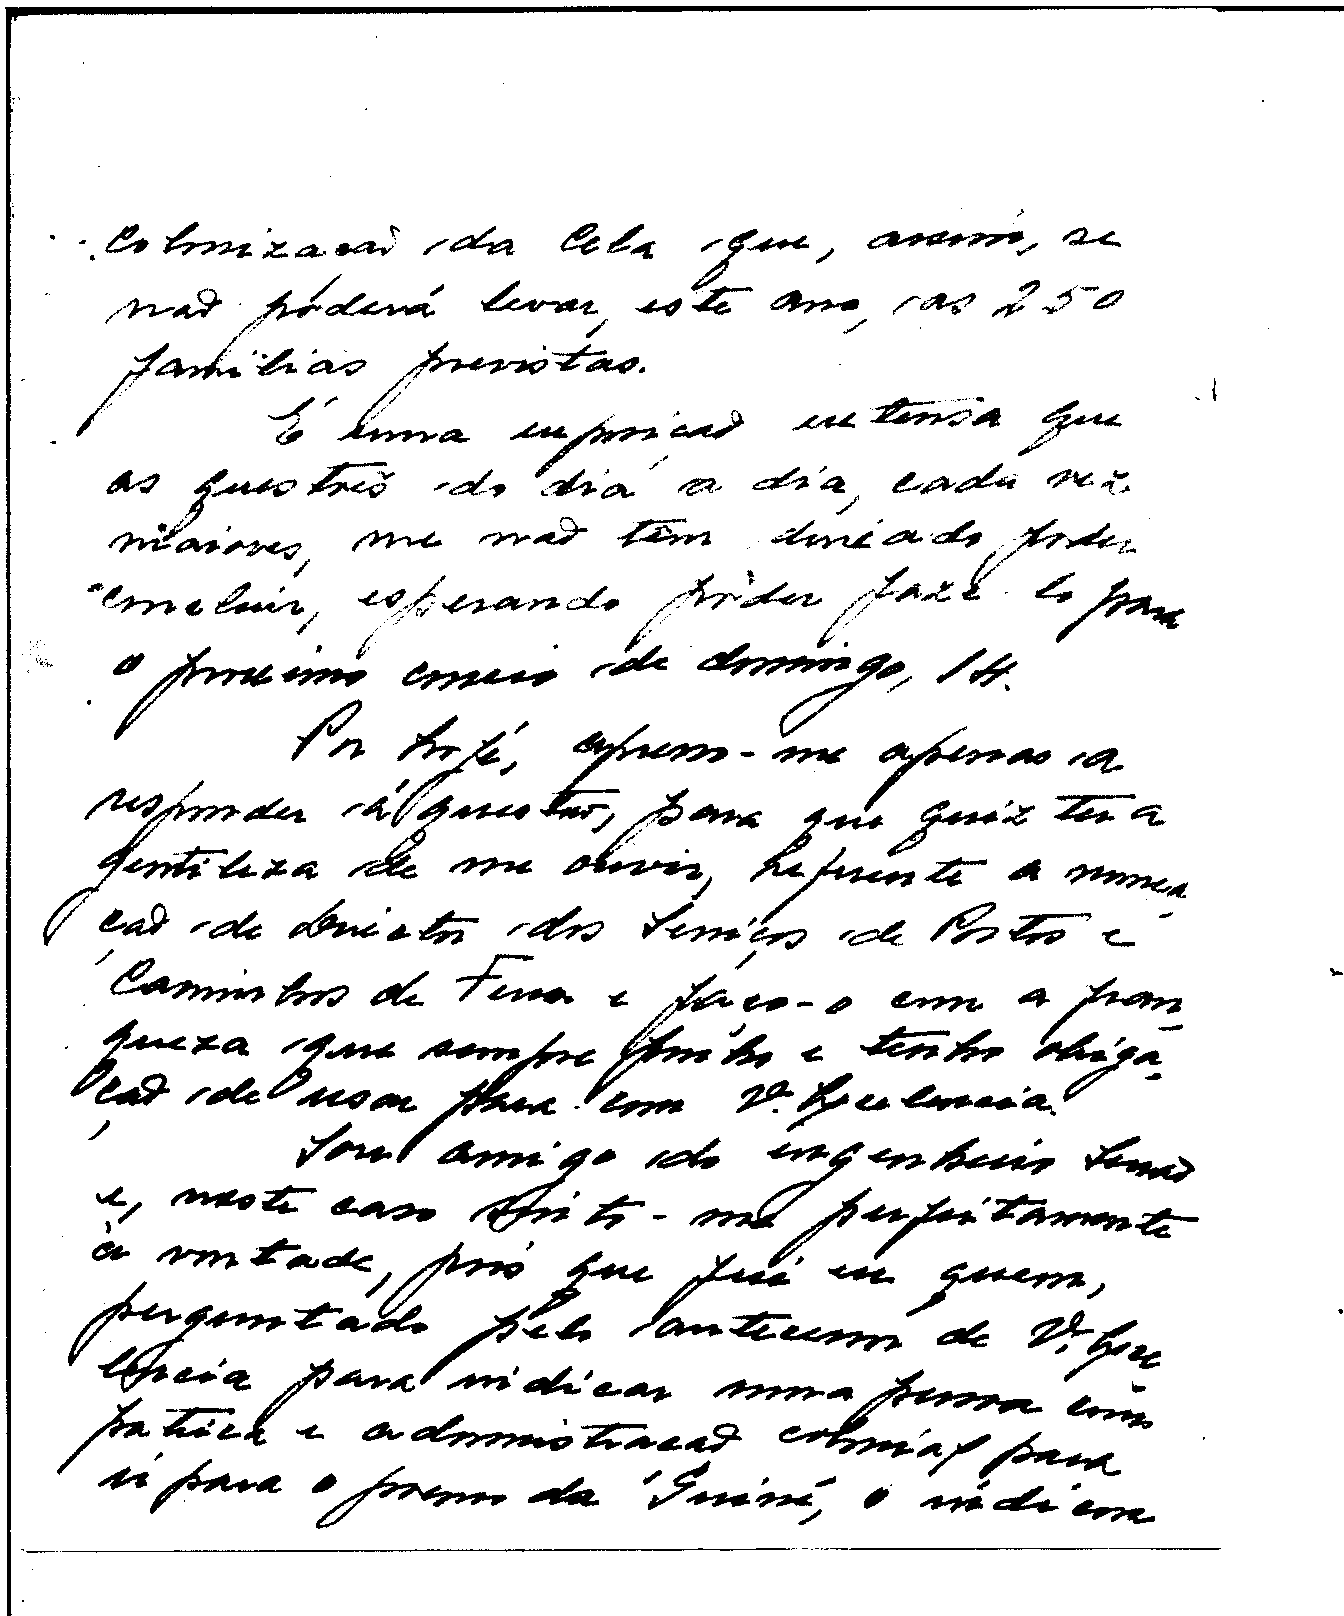 colonização da Cela que, assim, se
não poderá levar, este ano, as 250
familias previstas.
É uma exposição extensa que
as questões do dia a dia, cada vez
maiores, me não têm deixado poder
concluir, esperando poder fazê-lo para
o proximo correio de domingo, 14.
Por hoje, apresso-me apenas a
responder á questão, para que quiz ter a
gentileza de me ouvir, referente a nomea-
ção de Director dos Serviços de Portos e
Caminhos de Ferro e faço-o com a fran-
queza que sempre ponho e tenho obriga-
ção de usar para com V. Excelencia.
Sou amigo do engenheiro
e, neste caso sinto-me perfeitamente
á vontade, pois que fui eu quem,
perguntado pelo antecessor de V. Exce-
lencia para indicar uma pessoa com
pratica e administração colonial para
ir para o governo da Guiné, o indicou